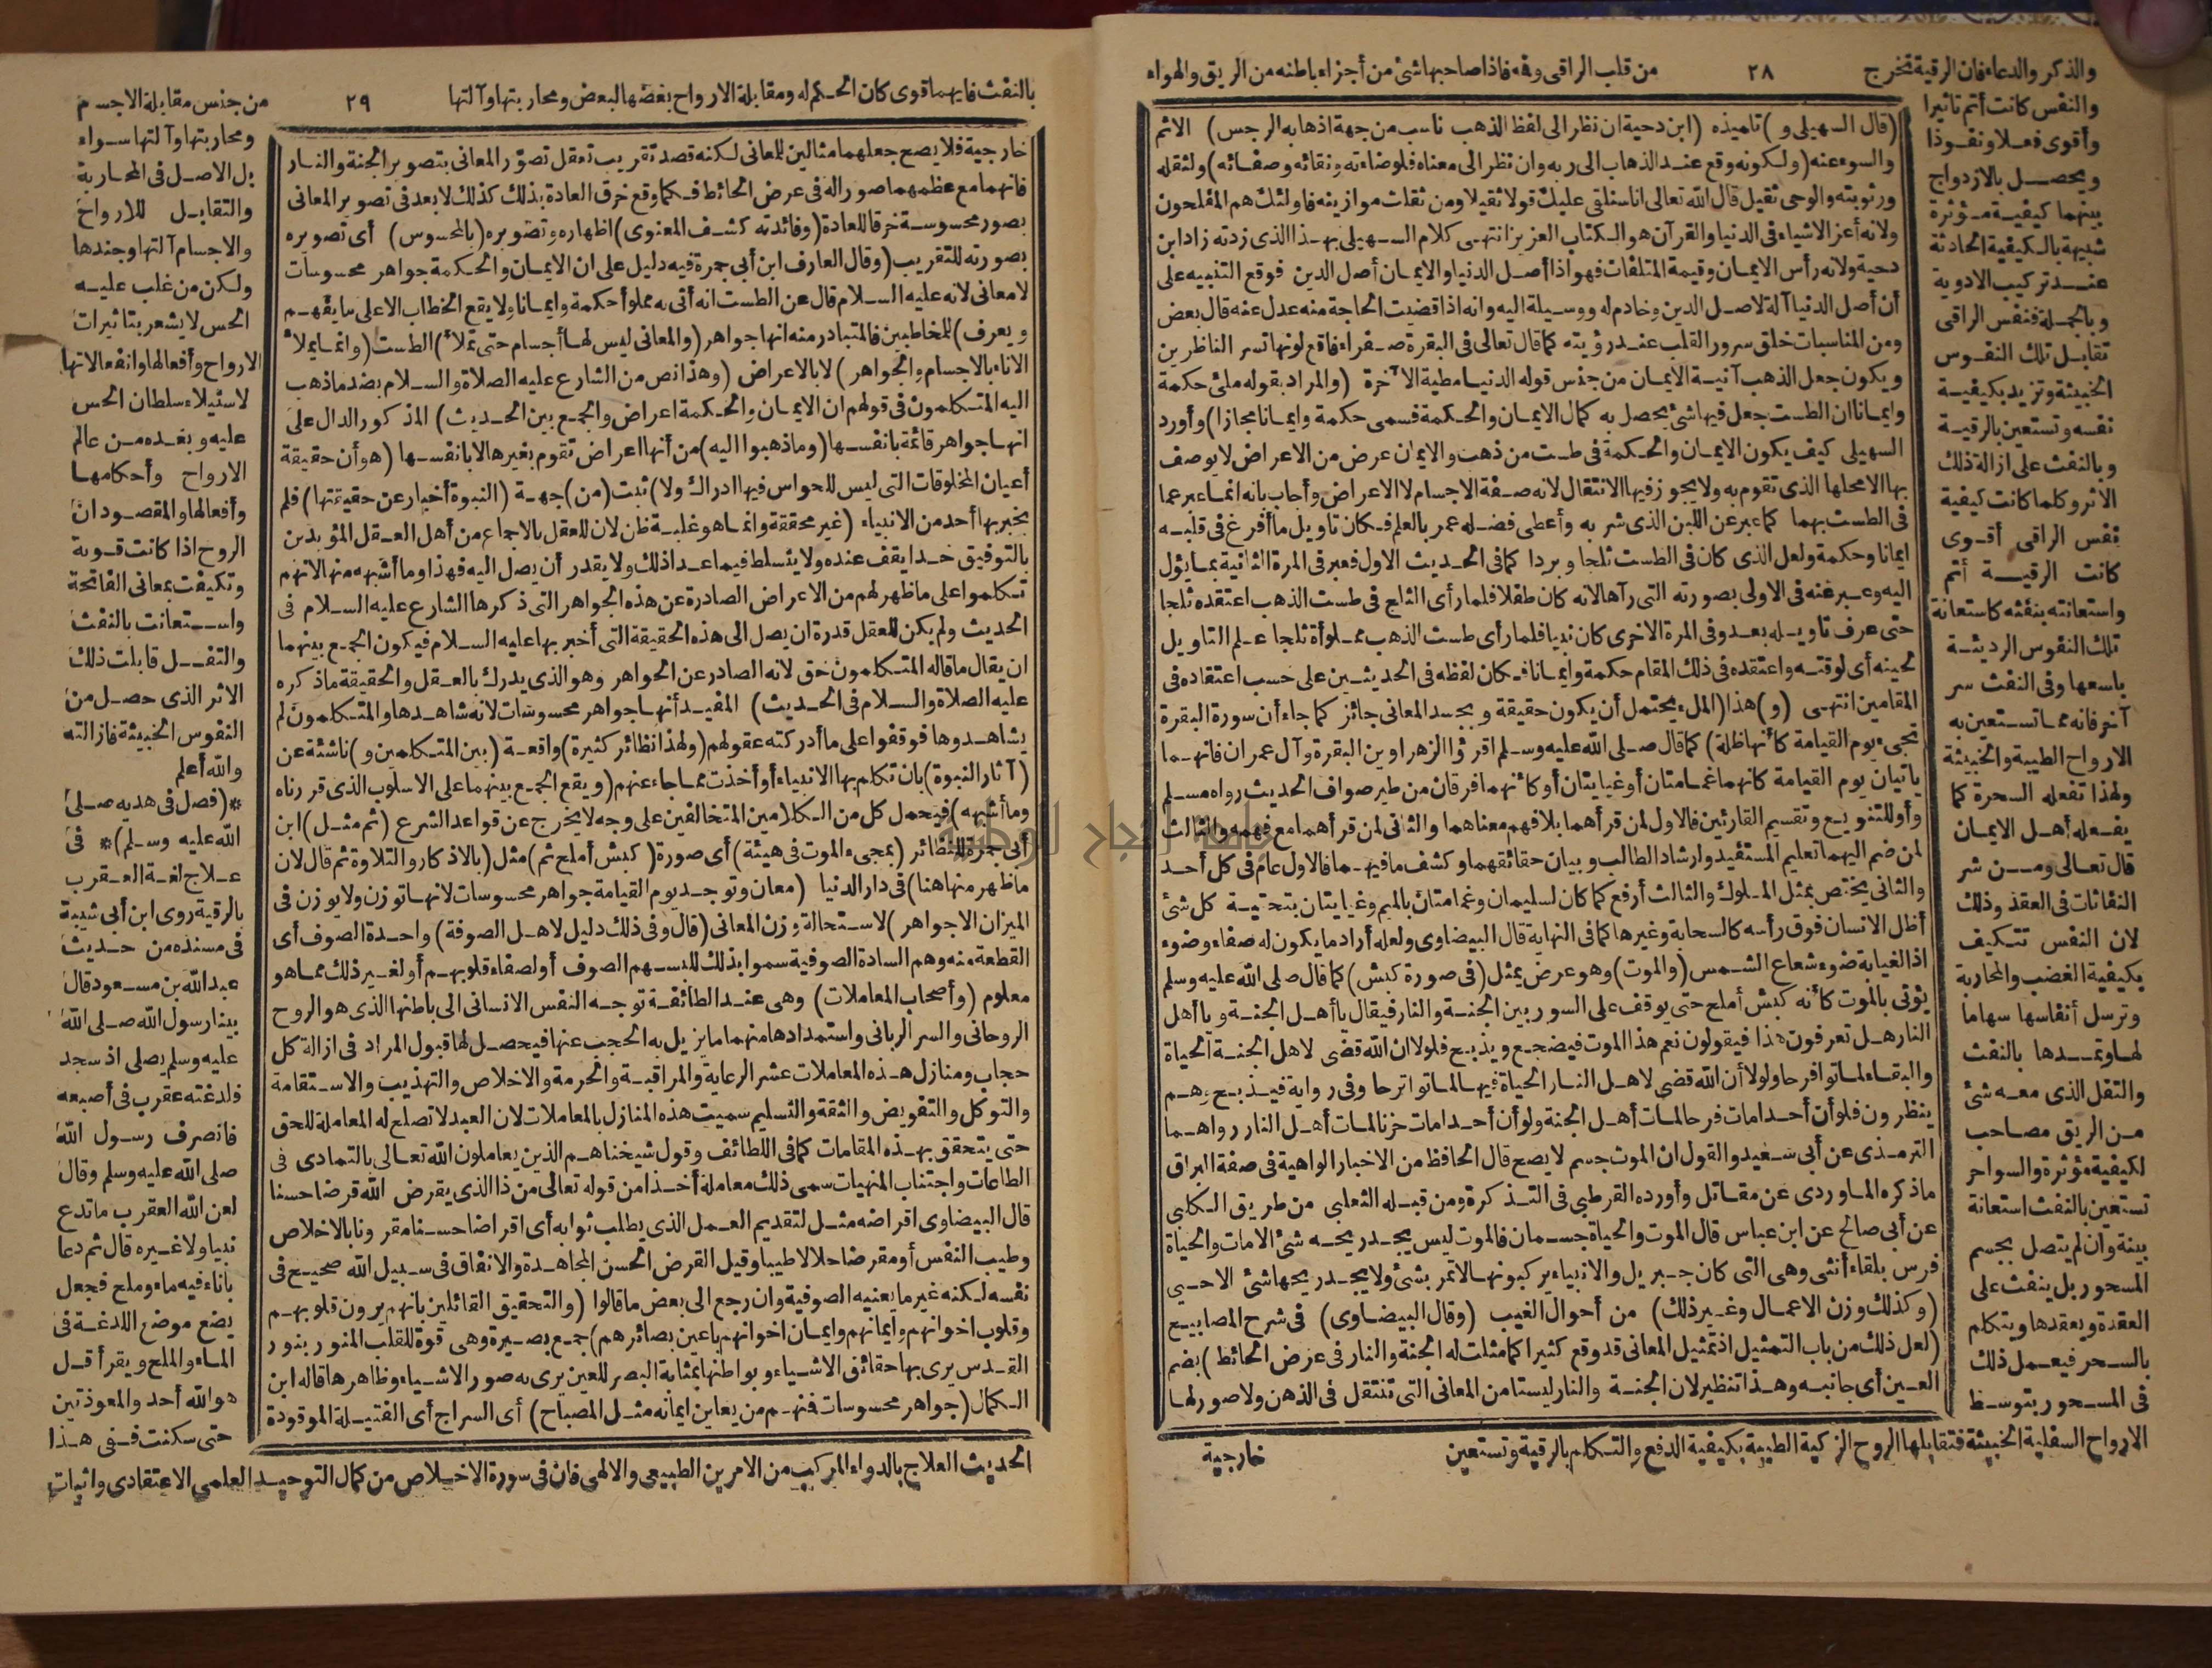 والذكر والدعاء فان الرقية تخرج ٢٨ من قلب الراقى وفه فاذا صاحبها شئ من أجزاء باطنه من الريق والهواء
والنفس كانت أتم تاثيرا
وأقوى فعلا ونفوذا
ويحصل بالازدواج
بينهما كيفية مؤثرة
شبيهة بالكيفية الحادثة
عند تركيب الادوية
وبالجملة فنفس الراقى
تقابل تلك النفوس
الخبيثة وتزيد بكيفية
نفسه وتستعين بالرقية
وبالنفث على ازالة ذلك
الاثر وكلما كانت كيفية
نفس الراقى أقوى
كانت الرقية أتم
واستعانته بنفثه كاستعانة
تلك النفوس الرديئة
باسعها وفى النفث سر
آخر فانه مما تستعين به
الارواح الطيبة والخبيثة
ولهذا تفعله السحرة كما
يفعله أهل الايمان
قال تعالى ومن شر
النفاثات فى العقد وذلك
لان النفس تتكيف
بكيفية الغضب والمحاربة
وترسل أنفاسها سهاما
لها وتمدها بالنفث
والتفل الذى معه شئ
من الريق مصاحب
لكيفية مؤثرة والسواحر
تستعين بالنفث استعانة
بينة وان لم يتصل بجسم
المسحور بل ينفث على
العقدة ويعقدها ويتكلم
بالسحر فيعمل ذلك
فى المسحور بتوسط
الارواح السفلية الخبيثة فتقابلها الروح الزكية الطيبة بكيفية الدفع والتكلم بالرقية وتستعين
(قال السهيلى و) تلميذه (ابن دحية ان نظر الى لفظ الذهب ناسب من جهة اذهابه الرجس) الاثم
والسوء عنه (ولكونه وقع عند الذهاب الى ربه وان نظر الى معناه فلوضاءته ونقائه وصفائه) ولثقله
ورثوبته والوحى ثقيل قال الله تعالى انا سنلقى عليك قولا ثقيلا ومن ثقلت موازينه فاولئك هم المفلحون
ولانه أعز الاشياء فى الدنيا والقرآن هو الكتاب العزيز انتهى كلام السهيلى بهذا الذى زدته زاد ابن
دحية ولانه رأس الايمان وقيمة المتلفات فهو اذا أصل الدنيا والايمان أصل الدين فوقع التنبيه على
أن أصل الدنيا آلة لاصل الدين وخادم له ووسيلة اليه وانه اذا قضيت الحاجة منه عدل عنه قال بعض
ومن المناسبات خلق سرور القلب عند رؤيته كما قال تعالى فى البقرة صفراء فاقع لونها تسر الناظرين
ويكون جعل الذهب آنية الايمان من جنس قوله الدنيا مطية الآخرة (والمراد بقوله ملئ حكمة
وايمانا ان الطست جعل فيها شئ يحصل به كمال الايمان والحكمة فسمى حكمة وايمانا مجازا) وأورد
السهيلى كيف يكون الايمان والحكمة فى طست من ذهب والايمان عرض من الاعراض لا يوصف
بها الا محلها الذى تقوم به ولا يجوز فيها الانتقال لانه صفة الاجسام لا الاعراض وأجاب بانه انما عبر عما
فى الطست بهما كما عبر عن اللبن الذى شربه وأعطى فضله عمر بالعلم فكان تاويل ما أفرغ فى قلبه
ايمانا وحكمة ولعل الذى كان فى الطست ثلجا وبردا كما فى الحديث الاول فعبر فى المرة الثانية بما يؤل
اليه وعبر عنه فى الاولى بصورته التى رآها لانه كان طفلا فلما رأى الثلج فى طست الذهب اعتقده ثلجا
حتى عرف تاويله بعد وفى المرة الاخرى كان نبيا فلما رأى طست الذهب مملوأة ثلجا علم التاويل
لحينه أى لوقته واعتقده فى ذلك المقام حكمة وايمانا فكان لفظه فى الحديثين على حسب اعتقاده فى
المقامين انتهى (و) هذا (الملء يحتمل أن يكون حقيقة وتجسد المعانى جائز كما جاء أن سورة البقرة
تجىء يوم القيامة كأنها ظلة) كما قال صلى الله عليه وسلم اقرؤا الزهراوين البقرة وآل عمران فانهما
ياتيان يوم القيامة كانهما غمامتان أو غيايتان أو كأنهما فرقان من طير صواف الحديث رواه مسلم
وأو للتنويع وتقسيم القارئين فالاول لمن قرأهما بلا فهم معناهما والثانى لمن قرأهما مع فهمه والثالث
لمن ضم اليهما تعليم المستفيد وارشاد الطالب وبيان حقائقهما وكشف ما فيهما فالاول عام فى كل أحد
والثانى يختص بمثل الملوك والثالث أرفع كما كان لسليمان وغمامتان بالميم وغيايتان بتحتية كل شئ
أظل الانسان فوق رأسه كالسحابة وغيرها كما فى النهاية قال البيضاوى ولعله أراد ما يكون له صفاء وضوء
اذ الغياية ضوء شعاع الشمس (والموت) وهو عرض يمثل (فى صورة كبش) كما قال صلى الله عليه وسلم
يؤتى بالموت كأنه كبش أملح حتى يوقف على السور بين الجنة والنار فيقال يا أهل الجنة ويا أهل
النار هل تعرفون هذا فيقولون نعم هذا الموت فيضجع ويذبح فلولا ان الله قضى لاهل الجنة الحياة
والبقاء لماتوا فرحا ولولا أن الله قضى لاهل النار الحياة فيها لماتوا ترحا وفى رواية فيذبح وهم
ينظرون فلو أن أحدا مات فرحا لمات أهل الجنة ولو أن أحدا مات حزنا لمات أهل النار رواهما
الترمذى عن أبى سعيد والقول ان الموت جسم لا يصح قال الحافظ من الاخبار الواهية فى صفة البراق
ما ذكره الماوردى عن مقاتل وأورده القرطبى فى التذكرة ومن قبله الثعلبى من طريق الكلبى
عن أبى صالح عن ابن عباس قال الموت والحياة جسمان فالموت ليس يجد ريحه شئ الا مات والحياة
فرس بلقاء أنثى وهى التى كان جبريل والانبياء يركبونها لا تمر بشئ ولا يجد ريحها شئ الا حى
(وكذلك وزن الاعمال وغير ذلك) من أحوال الغيب (وقال البيضاوى) فى شرح المصابيح
(لعل ذلك من باب التمثيل اذ تمثيل المعانى قد وقع كثيرا كما مثلت له الجنة والنار فى عرض الحائط) بضم
العين أى جانبه وهذا تنظير لان الجنة والنار ليستا من المعانى التى تنتقل فى الذهن ولا صور لها
خارجية
بالنفث فايهما قوى كان الحكم له ومقابلة الارواح بعضها لبعض ومحاربتها وآلتها ٢٩ من جنس مقابلة الاجسام
خارجية فلا يصح جعلهما مثالين للمعانى لكنه قصد تقريب تعقل تصوّر المعانى بتصوير الجنة والنار
فانهما مع عظمهما صورا له فى عرض الحائط فكما وقع خرق العادة بذلك كذلك لا بعد فى تصوير المعانى
بصور محسوسة خرقا للعادة (وفائدته كشف المعنوى) اظهاره وتصويره (بالمحسوس) أى تصويره
بصورته للتقريب (وقال العارف ابن أبى جمرة فيه دليل على ان الايمان والحكمة جواهر محسوسات
لا معانى لانه عليه السلام قال عن الطست انه أتى به مملوأ حكمة وايمانا ولا يقع الخطاب الا على ما يفهم
ويعرف) للمخاطبين فالمتبادر منه انها جواهر (والمعانى ليس لها أجسام حتى تملأ) الطست (وانما يملأ
الاناء بالاجسام والجواهر) لا بالاعراض (وهذا نص من الشارع عليه الصلاة والسلام بضد ما ذهب
اليه المتكلمون فى قولهم ان الايمان والحكمة اعراض والجمع بين الحديث) المذكور الدال على
انها جواهر قائمة بانفسها (وما ذهبوا اليه) من أنها اعراض تقوم بغيرها لا بانفسها (هو أن حقيقة
أعيان المخلوقات التى ليس للحواس فيها ادراك ولا) ثبت (من) جهة (النبوة أخبار عن حقيقتها) فلم
يخبر بها أحد من الانبياء (غير محققة وانما هو غلبة ظن لان للعقل بالاجماع من أهل العقل المؤيدين
بالتوفيق حدا يقف عنده ولا يتسلط فيما عدا ذلك ولا يقدر أن يصل اليه فهذا وما أشبهه منها لانهم
تكلموا على ما ظهر لهم من الاعراض الصادرة عن هذه الجواهر التى ذكرها الشارع عليه السلام فى
الحديث ولم يكن للعقل قدرة ان يصل الى هذه الحقيقة التى أخبر بها عليه السلام فيكون الجمع بينهما
ان يقال ما قاله المتكلمون حق لانه الصادر عن الجواهر وهو الذى يدرك بالعقل والحقيقة ما ذكره
عليه الصلاة والسلام فى الحديث) المفيد أنها جواهر محسوسات لانه شاهدها والمتكلمون لم
يشاهدوها فوقفوا على ما أدركته عقولهم (ولهذا نظائر كثيرة) واقعة (بين المتكلمين و) ناشئة عن
(آثار النبوة) بان تكلم بها الانبياء أو أخذت مما جاء عنهم (ويقع الجمع بينهما على الاسلوب الذى قررناه
وما أشبهه) فيحمل كل من الكلامين المتخالفين على وجه لا يخرج عن قواعد الشرع (ثم مثل) ابن
أبى جمرة للنظائر (بمجىء الموت فى هيئة) أى صورة (كبش أملح ثم) مثل (بالاذكار والتلاوة ثم قال لان
ما ظهر منها هنا) فى دار الدنيا (معان وتوجد يوم القيامة جواهر محسوسات لانها توزن ولا يوزن فى
الميزان الا جواهر) لاستحالة وزن المعانى (قال وفى ذلك دليل لاهل الصوفة) واحدة الصوف أى
القطعة منه وهم السادة الصوفية سموا بذلك للبسهم الصوف أو لصفاء قلوبهم أو لغير ذلك مما هو
معلوم (وأصحاب المعاملات) وهى عند الطائفة توجه النفس الانسانى الى باطنها الذى هو الروح
الروحانى والسر الربانى واستمدادها منهما ما يزيل به الحجب عنها فيحصل لها قبول المراد فى ازالة كل
حجاب ومنازل هذه المعاملات عشر الرعاية والمراقبة والحرمة والاخلاص والتهذيب والاستقامة
والتوكل والتفويض والثقة والتسليم سميت هذه المنازل بالمعاملات لان العبد لا تصلح له المعاملة للحق
حتى يتحقق بهذه المقامات كما فى اللطائف وقول شيخنا هم الذين يعاملون الله تعالى بالتمادى فى
الطاعات واجتناب المنهيات سمى ذلك معاملة أخذا من قوله تعالى من ذا الذى يقرض الله قرضا حسنا
قال البيضاوى اقراضه مثل لتقديم العمل الذى يطلب ثوابه أى اقراضا حسنا مقرونا بالاخلاص
وطيب النفس أو مقرضا حلالا طيبا وقيل القرض الحسن المجاهدة والانفاق فى سبيل الله صحيح فى
نفسه لكنه غير ما يعنيه الصوفية وان رجع الى بعض ما قالوا (والتحقيق القائلين بانهم يرون قلوبهم
وقلوب اخوانهم وايمانهم وايمان اخوانهم باعين بصائرهم) جمع بصيرة وهى قوة للقلب المنور بنور
القدس يرى بها حقائق الاشياء وبواطنها بمثابة البصر للعين يرى به صور الاشياء وظاهرها قاله ابن
الكمال (جواهر محسوسات فنهم من يعاين ايمانه مثل المصباح) أى السراج أى الفتيلة الموقودة
ومحاربتها وآلتها سواء
بل الاصل فى المحاربة
والتقابل للارواح
والاجسام آلتها وجندها
ولكن من غلب عليه
الحس لا يشعر بتاثيرات
الارواح وأفعالها وانفعالاتها
لاستيلاء سلطان الحس
عليه وبعده من عالم
الارواح وأحكامها
وأفعالها والمقصود ان
الروح اذا كانت قوية
وتكيفت بمعانى الفاتحة
واستعانت بالنفث
والتفل قابلت ذلك
الاثر الذى حصل من
النفوس الخبيثة فازالته
والله أعلم
*(فصل فى هديه صلى
الله عليه وسلم)* فى
علاج لدغة العقرب
بالرقية روى ابن أبى شيبة
فى مسنده من حديث
عبد الله بن مسعود قال
بينا رسول الله صلى الله
عليه وسلم يصلى اذ سجد
فلدغته عقرب فى أصبعه
فانصرف رسول الله
صلى الله عليه وسلم وقال
لعن الله العقرب ما تدع
نبيا ولا غيره قال ثم دعا
باناء فيه ماء وملح فجعل
يضع موضع اللدغة فى
الماء والملح ويقرأ قل
هو الله أحد والمعوذتين
حتى سكنت ففى هذا
الحديث العلاج بالدواء المركب من الامرين الطبيعى والالهى فان فى سورة الاخلاص من كمال التوحيد العلمى الاعتقادى واثبات
جامعة النجاح الوطنية